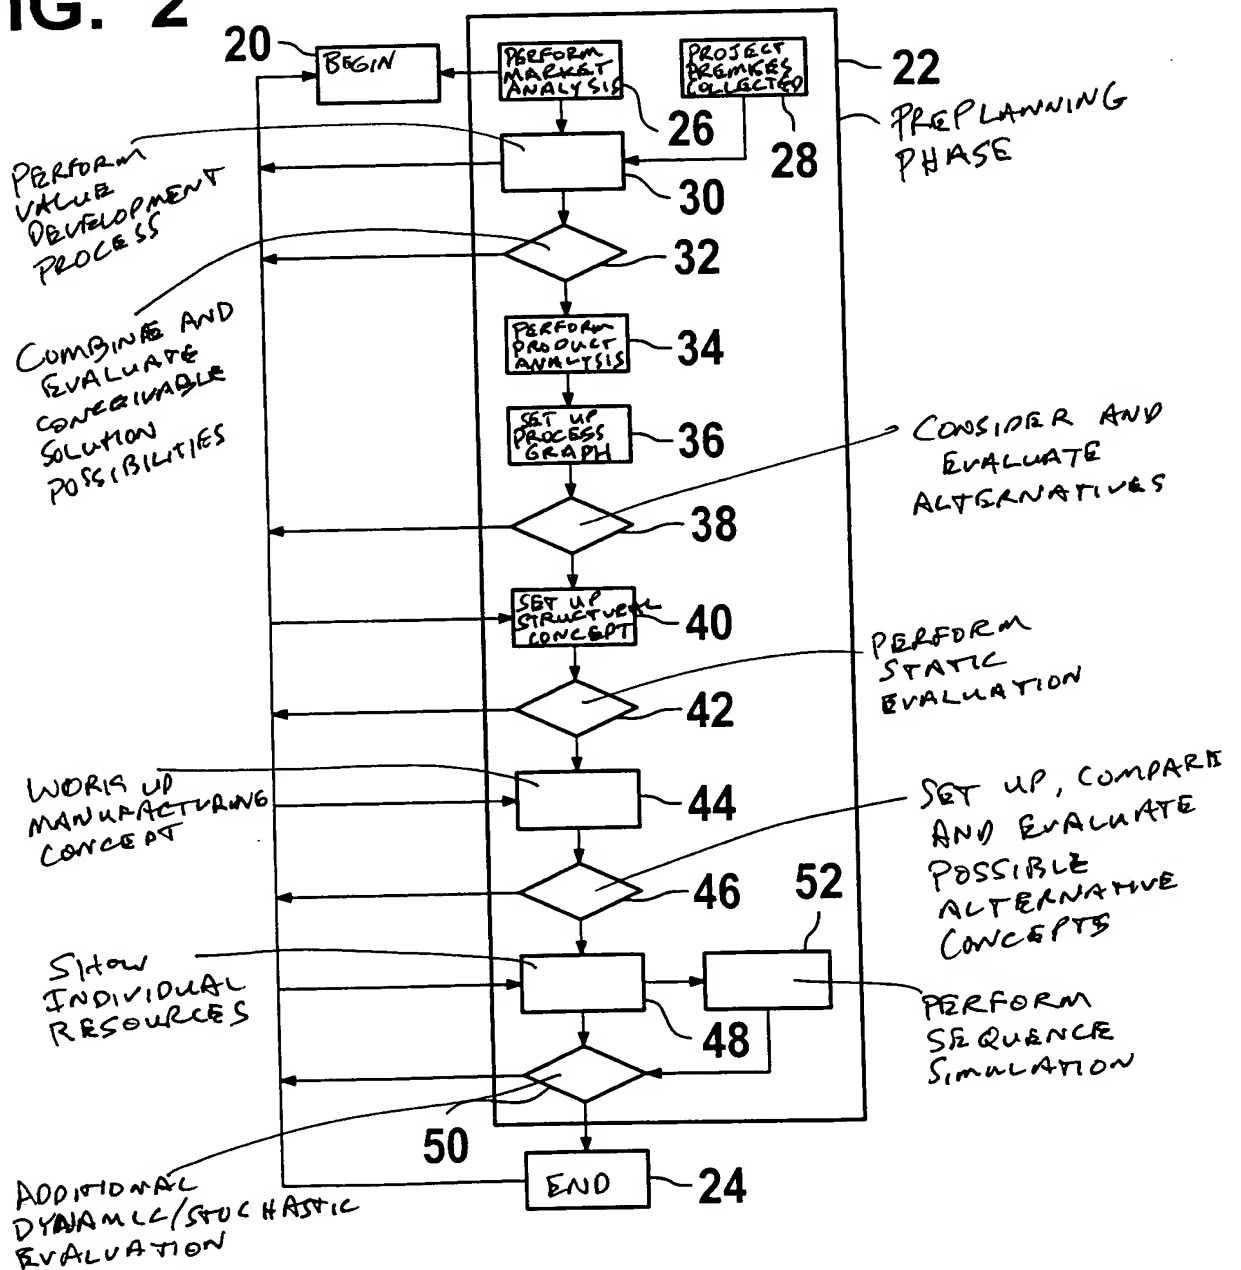 FIG. 2
20
BEGIN
PERFORM
MARKET
ANALYSIS
PROJECT
PREMISES
COLLECTED
22
PREPLANNING
PHASE
26
28
PERFORM
VALUE
DEVELOPMENT
PROCESS
30
32
COMBINE AND
EVALUATE
CONCEIVABLE
SOLUTION
POSSIBILITIES
PERFORM
PRODUCT
ANALYSIS
34
SET UP
PROCESS
GRAPH
36
CONSIDER AND
EVALUATE
ALTERNATIVES
38
SET UP
STRUCTURAL
CONCEPT
40
PERFORM
STATIC
EVALUATION
42
WORK UP
MANUFACTURING
CONCEPT
44
SET UP, COMPARE
AND EVALUATE
POSSIBLE
ALTERNATIVE
CONCEPTS
46
52
SHOW
INDIVIDUAL
RESOURCES
48
PERFORM
SEQUENCE
SIMULATION
50
ADDITIONAL
DYNAMIC/STOCHASTIC
EVALUATION
END
24